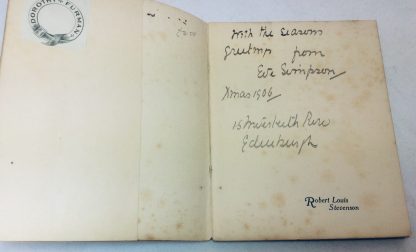 DOROTHY FURMAN
With the seasons
greetings from
Eve Simpson
Xmas 1906
Row
Edinburgh
Robert Louis
Stevenson